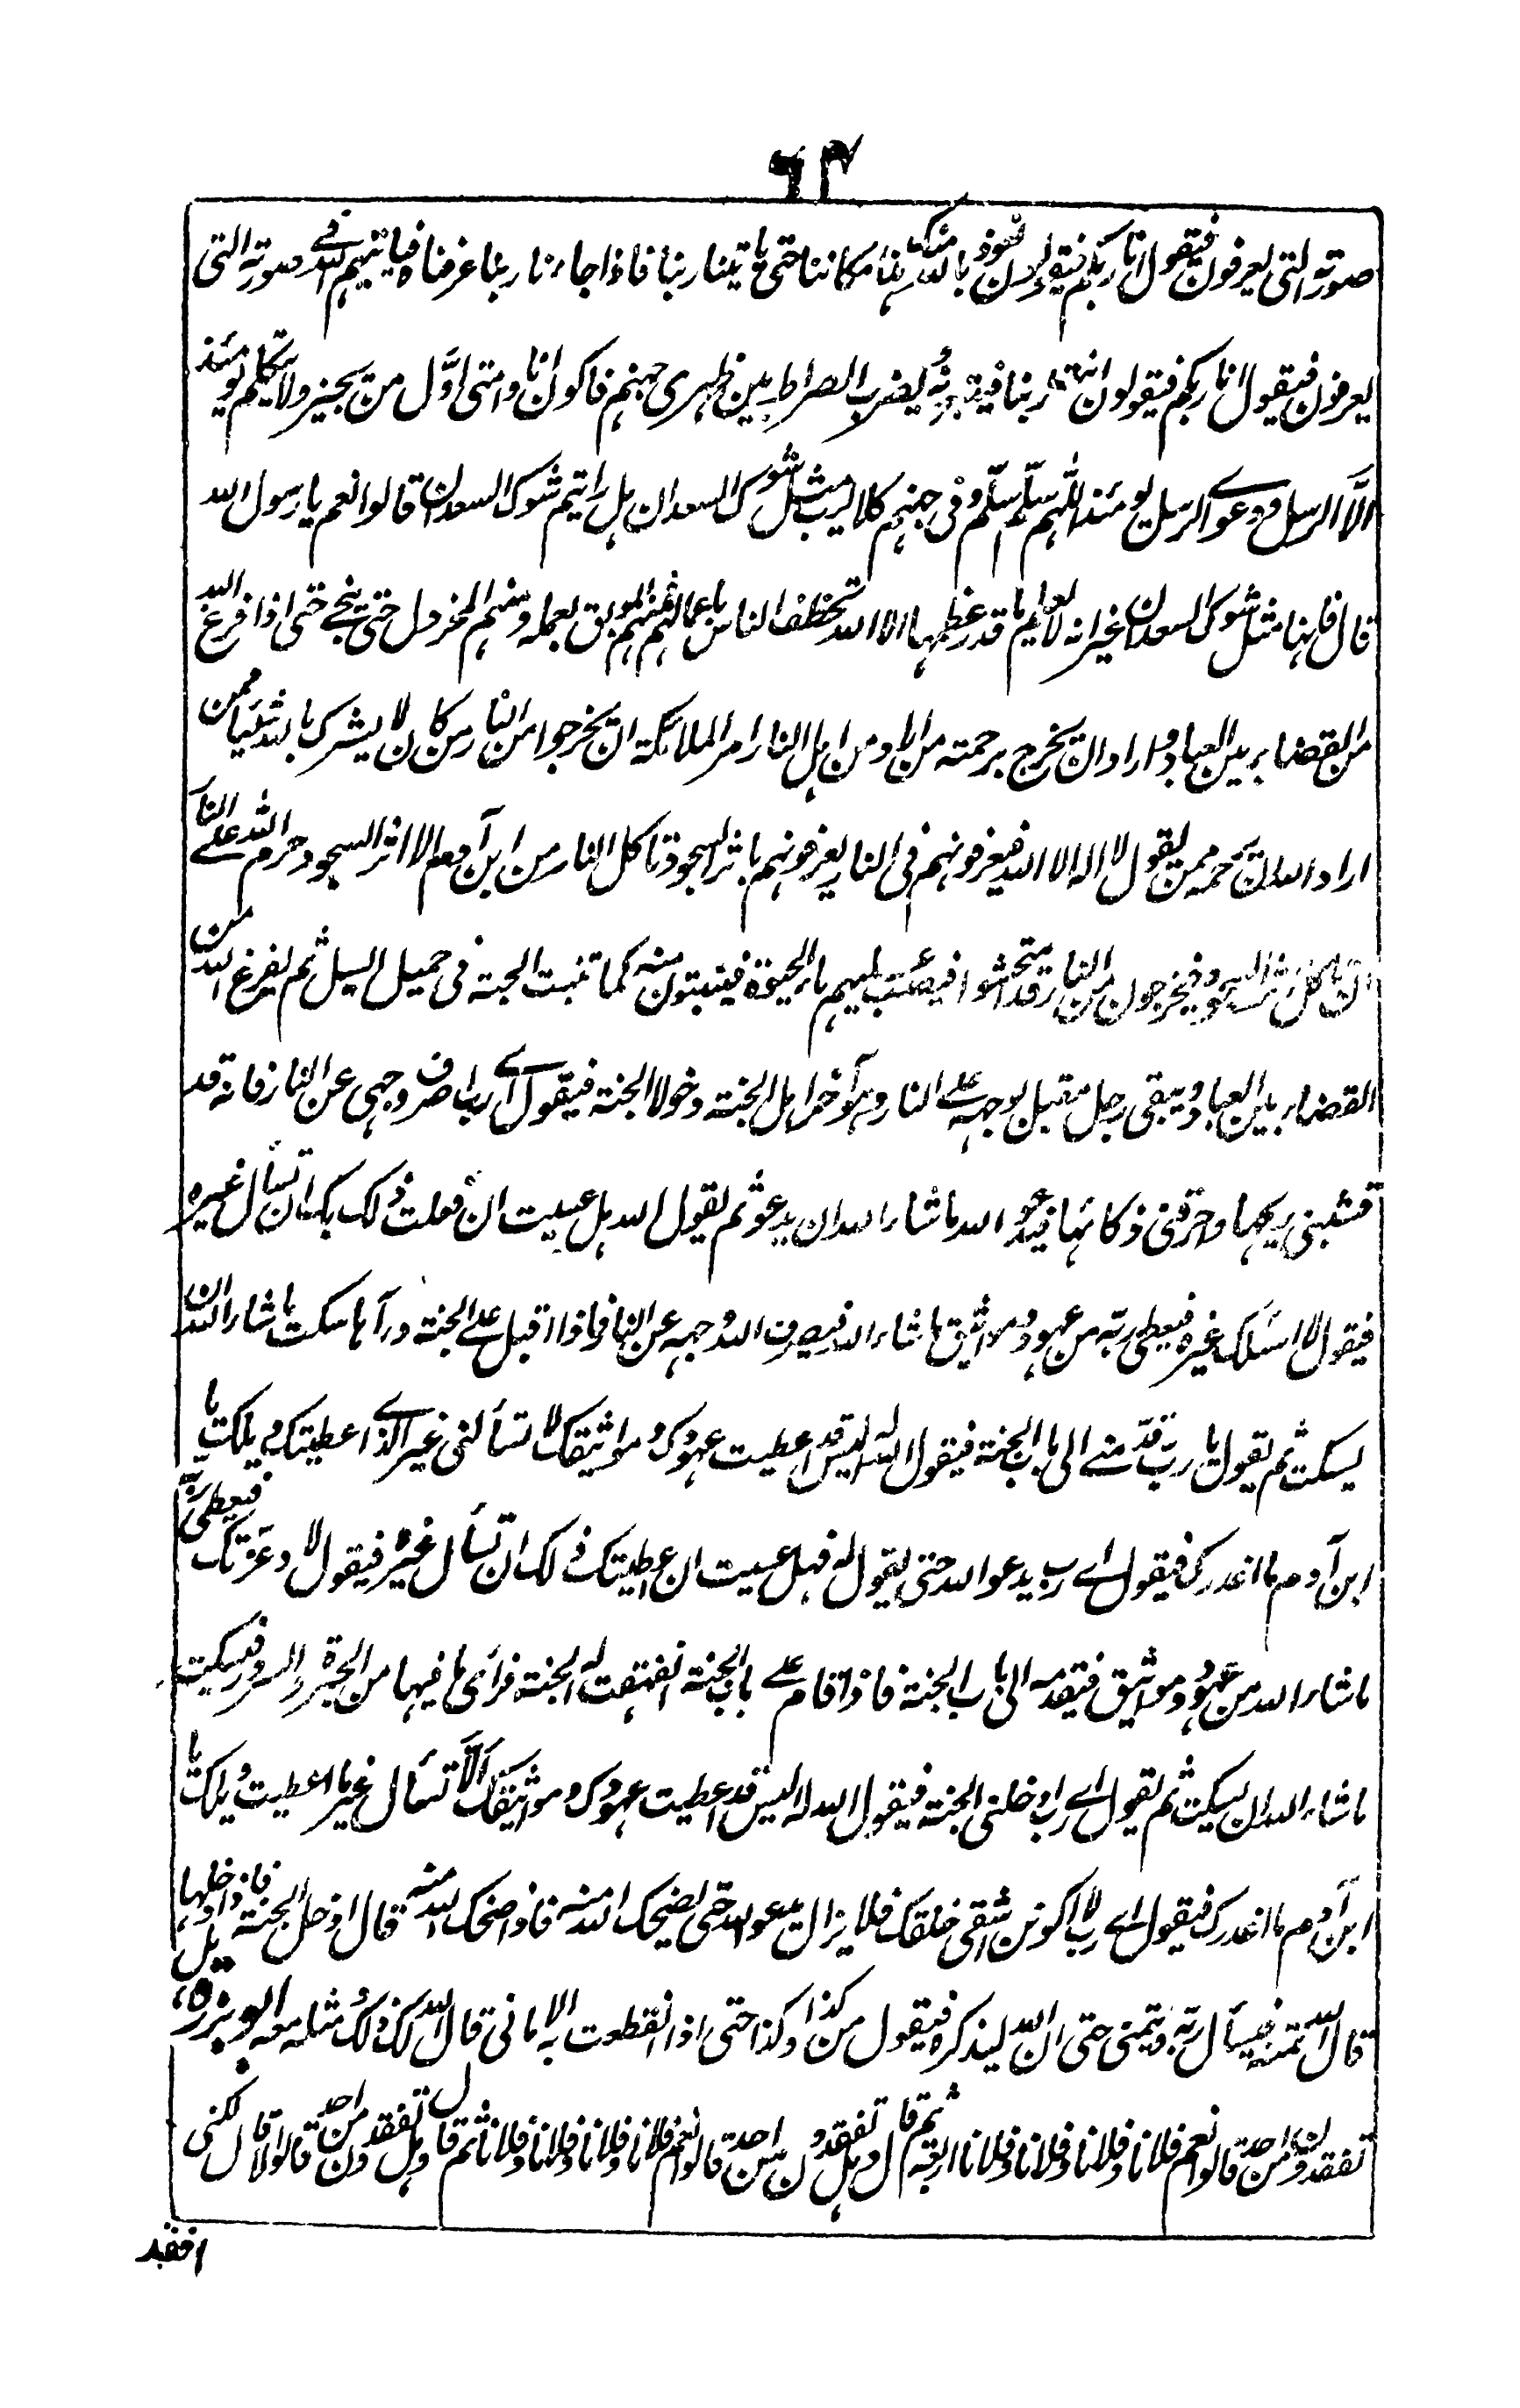 ٦٣
صورته التي يعرفون فيقول انا ربكم فيقولون نعوذ بالله منك هذا مكاننا حتى ياتينا ربنا فاذا جاءنا ربنا عرفناه فياتيهم الله في صورته التي
يعرفون فيقول انا ربكم فيقولون انت ربنا فيتبعونه يضرب الصراط بين ظهرى جهنم فاكون انا وامتى اوّل من يجيز ولا يتكلم يومئذ
الَّا الرسل ودعوى الرسل يومئذ اللّٰهم سلّم سلّم وفى جهنم كلاليب مثل شوك السعدان هل رايتم شوك السعدان قالوا نعم يا رسول الله
قال فانها مثل شوك السعدان غير انه لا يعلم ما قدر عظمها الا الله تخطف الناس باعمالهم فمنهم الموبق بعمله ومنهم المخردل حتى ينجے حتى اذا فرغ الله
من القضاء بين العباد و اراد ان يخرج برحمته من اراد من اهل النار امر الملائكة ان يخرجوا من النار من كان لا يشرك بالله شيئا ممن
اراد الله ان يرحمه ممن يقول لا اله الا الله فيعرفونهم فى النار يعرفونهم باثر السجود تاكل النار من ابن آدم الا اثر السجود حرم الله علے النار
ان تاكل اثر السجود فيخرجون من النار قد امتحشوا فيصب عليهم ماء الحيوة فينبتون منه كما تنبت الحبة فى حميل السيل ثم يفرغ الله من
القضاء بين العباد ويبقى رجل مقبل بوجهه علے النار وهو آخر اهل الجنة دخولا الجنة فيقول اے رب اصرف وجهى عن النار فانه قد
قشبنى ريحها واحرقنى ذكائها فيدعو الله ما شاء الله ان يدعو ثم يقول الله هل عسيت ان فعلت ذلك بك ان تسأل غيره
فيقول لا اسئلك غيره فيعطى ربّه من عهود ومواثيق ما شاء الله فيصرف الله وجهه عن النار فاذا اقبل علے الجنة ورآها سكت ما شاء الله ان
يسكت ثم يقول يا رب قدّمنے الى باب الجنة فيقول الله له اليس قد اعطيت عهودك ومواثيقك لا تسألنى غير الذے اعطيتك ويلك يا
ابن آدم ما اغدرك فيقول اے رب يدعو الله حتى يقول له فهل عسيت ان اعطيتك ذلك ان تسأل غيره فيقول لا وعزتك فيعطى ربه
ما شاء الله من عهود ومواثيق فيقدمه الى باب الجنة فاذا قام علے باب الجنة انفهقت له الجنة فرأى ما فيها من الحبرة والسرور فيسكت
ما شاء الله ان يسكت ثم يقول اے رب ادخلنى الجنة فيقول الله له اليس قد اعطيت عهودك ومواثيقك الّا تسأل غير ما اعطيت ويلك يا
ابن آدم ما اغدرك فيقول اے رب لا اكونن اشقى خلقك فلا يزال يدعو الله حتى يضحك الله منه فاذا ضحك الله منه قال ادخل الجنة فاذا دخلها
قال الله تمنه فيسأل ربّه ويتمنى حتى ان الله ليذكره فيقول من كذا وكذا حتى اذا انقطعت به الامانى قال الله لك ذلك ومثله معه ابو برزة، هل
تفقدون من احد قالوا نعم فلانا وفلانا وفلانا وفلانا اربعة ثم قال وهل تفقدون من احد قالوا نعم فلانا وفلانا وفلانا وفلانا ثم قال وهل تفقدون من احد قالوا لا قال لكنى
افقد